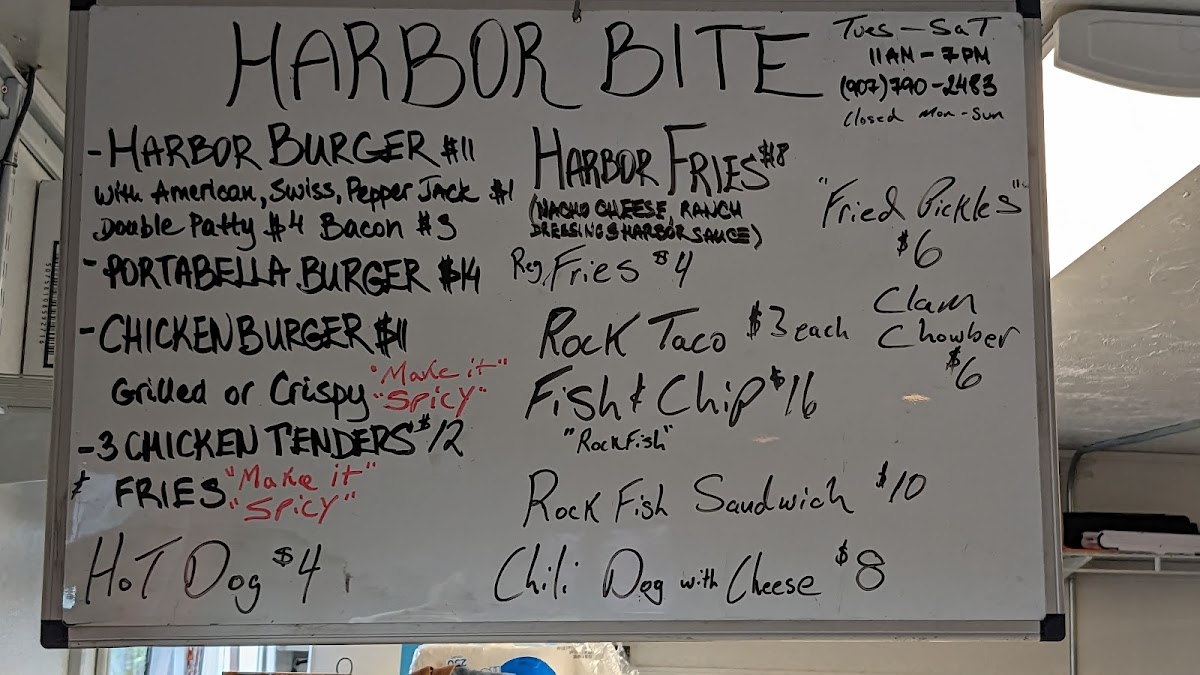 HARBOR BITE
Tues - SaT
11AM - 7PM
(907)790-2483
Closed Mon - Sun
- HARBOR BURGER $11
with American, Swiss, Pepper Jack $1
Double Patty $4 Bacon $3
- PORTABELLA BURGER $14
- CHICKEN BURGER $11
Grilled or Crispy "Make it"
"SPICY"
- 3 CHICKEN TENDERS $12
& FRIES "Make it"
"SPICY"
HoT Dog $4
HARBOR FRIES $8
(NACHO CHEESE, RANCH
DRESSING & HARBOR SAUCE)
Reg. Fries $4
Rock Taco $3 each
Fish & Chip $16
"Rockfish"
Rock Fish Sandwich $10
Chili Dog with Cheese $8
"Fried Pickles"
$6
Clam
Chowber
$6